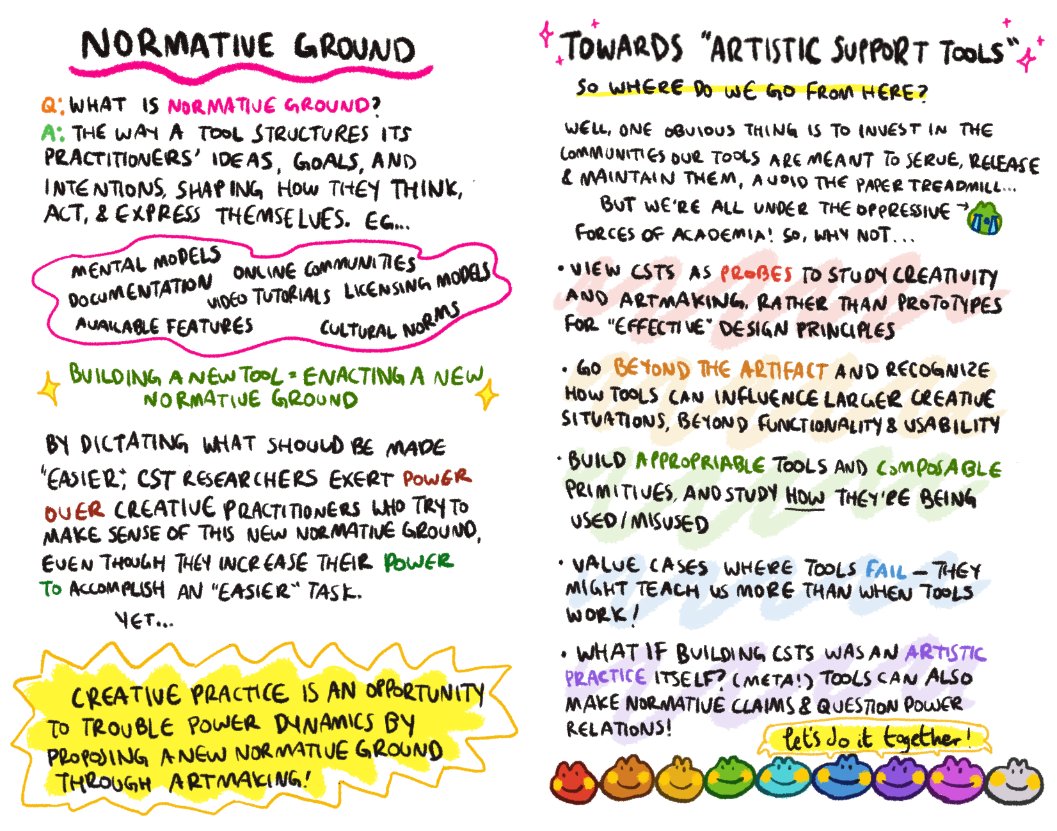 NORMATIVE GROUND
Q: WHAT IS NORMATIVE GROUND?
A: THE WAY A TOOL STRUCTURES ITS
PRACTITIONERS' IDEAS, GOALS, AND
INTENTIONS, SHAPING HOW THEY THINK,
ACT, & EXPRESS THEMSELVES. EG...
MENTAL MODELS
ONLINE COMMUNITIES
DOCUMENTATION
VIDEO TUTORIALS
LICENSING MODELS
AVAILABLE FEATURES
CULTURAL NORMS
BUILDING A NEW TOOL = ENACTING A NEW
NORMATIVE GROUND
BY DICTATING WHAT SHOULD BE MADE
"EASIER", CST RESEARCHERS EXERT POWER
OVER CREATIVE PRACTITIONERS WHO TRY TO
MAKE SENSE OF THIS NEW NORMATIVE GROUND,
EVEN THOUGH THEY INCREASE THEIR POWER
TO ACCOMPLISH AN "EASIER" TASK.
YET...
CREATIVE PRACTICE IS AN OPPORTUNITY
TO TROUBLE POWER DYNAMICS BY
PROPOSING A NEW NORMATIVE GROUND
THROUGH ARTMAKING!
TOWARDS "ARTISTIC SUPPORT TOOLS"
SO WHERE DO WE GO FROM HERE?
WELL, ONE OBVIOUS THING IS TO INVEST IN THE
COMMUNITIES OUR TOOLS ARE MEANT TO SERVE, RELEASE
& MAINTAIN THEM, AVOID THE PAPER TREADMILL...
BUT WE'RE ALL UNDER THE OPPRESSIVE →
FORCES OF ACADEMIA! SO, WHY NOT...
• VIEW CSTS AS PROBES TO STUDY CREATIVITY
AND ARTMAKING, RATHER THAN PROTOTYPES
FOR "EFFECTIVE" DESIGN PRINCIPLES
• GO BEYOND THE ARTIFACT AND RECOGNIZE
HOW TOOLS CAN INFLUENCE LARGER CREATIVE
SITUATIONS, BEYOND FUNCTIONALITY & USABILITY
• BUILD APPROPRIABLE TOOLS AND COMPOSABLE
PRIMITIVES, AND STUDY HOW THEY'RE BEING
USED/MISUSED
• VALUE CASES WHERE TOOLS FAIL — THEY
MIGHT TEACH US MORE THAN WHEN TOOLS
WORK!
• WHAT IF BUILDING CSTS WAS AN ARTISTIC
PRACTICE ITSELF? (META!) TOOLS CAN ALSO
MAKE NORMATIVE CLAIMS & QUESTION POWER
RELATIONS!
let's do it together!